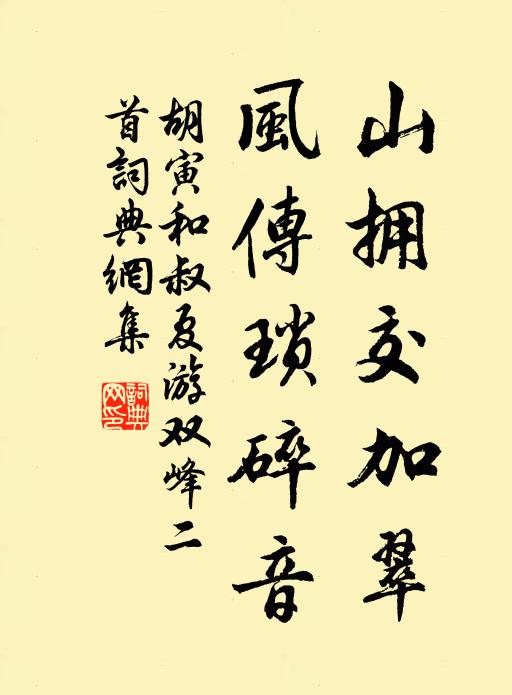 山拥交加翠
風傳瑣碎音
胡寅和叔夏游双峰二
首詞典網集
詞典
网印